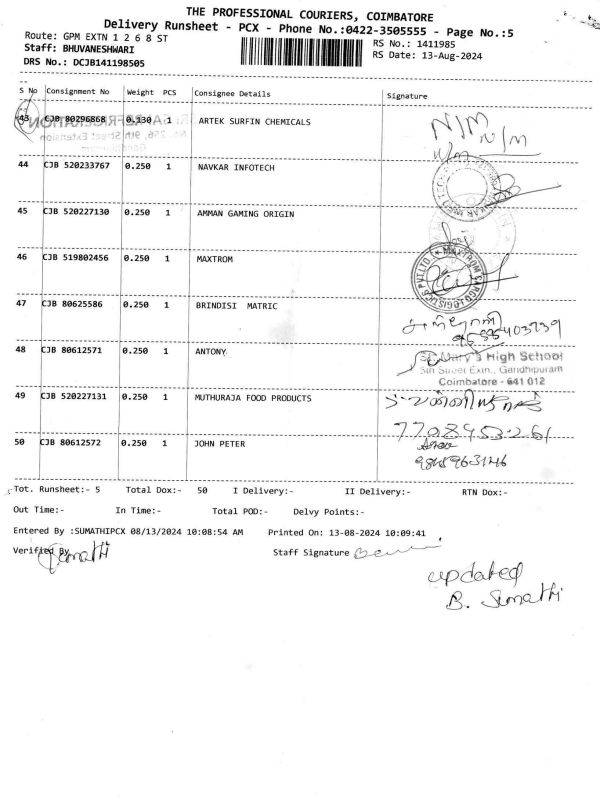 THE PROFESSIONAL COURIERS, COIMBATORE
Delivery Runsheet - PCX - Phone No.:0422-3505555 - Page No.:5
Route: GPM EXTN 1 2 6 8 ST
RS No.: 1411985
Staff: BHUVANESHWARI
RS Date: 13-Aug-2024
DRS No.: DCJB141198505
S No Consignment No Weight PCS Consignee Details Signature
43 CJB 80296868 0.130 1 ARTEK SURFIN CHEMICALS N/M N/M
N/M
44 CJB 520233767 0.250 1 NAVKAR INFOTECH
45 CJB 520227130 0.250 1 AMMAN GAMING ORIGIN
46 CJB 519802456 0.250 1 MAXTROM
47 CJB 80625586 0.250 1 BRINDISI MATRIC
48 CJB 80612571 0.250 1 ANTONY
St. Mary's High School
5th Street Extn., Gandhipuram
Coimbatore - 641 012
49 CJB 520227131 0.250 1 MUTHURAJA FOOD PRODUCTS
7708453261
50 CJB 80612572 0.250 1 JOHN PETER
Tot. Runsheet:- 5 Total Dox:- 50 I Delivery:- II Delivery:- RTN Dox:-
Out Time:- In Time:- Total POD:- Delvy Points:-
Entered By :SUMATHIPCX 08/13/2024 10:08:54 AM Printed On: 13-08-2024 10:09:41
Verified By Sumathi Staff Signature
updated
B. Sumathi